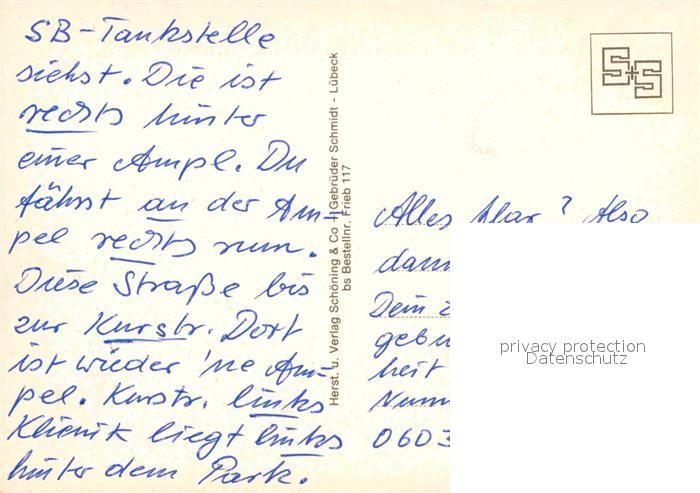 SB-Tankstelle
siehst. Die ist
rechts hinter
einer Ampl. Du
fährst an der Am-
pel rechts rum.
Diese Straße bis
zur Kurstr. Dort
ist wieder 'ne Am-
pel. Kurstr. links
Klienik liegt links
hinter dem Park.
Herst. u. Verlag Schöning & Co. + Gebrüder Schmidt - Lübeck
bs Bestellnr. Frieb 117
S+S
Alles klar? Also
dann
Dein
gebu
heit
Numm
0603
privacy protection
Datenschutz